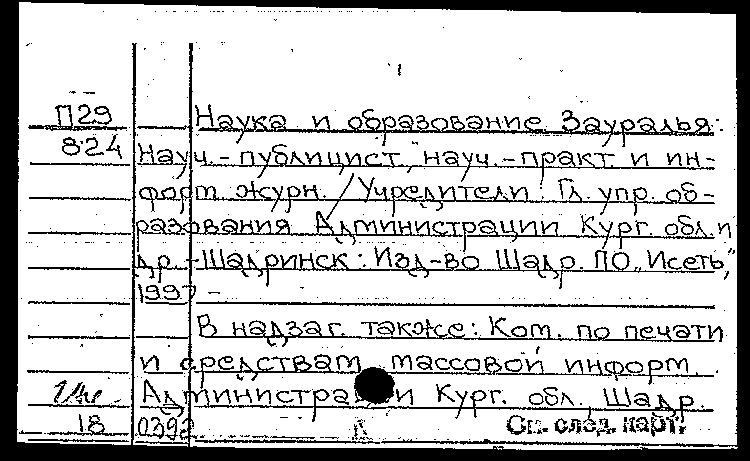 П29
824
Наука и образование Зауралья:
Науч.-публицист., науч.-практ. и ин-
форм. журн. / Учредители: Гл. упр. об-
разования Администрации Кург. обл. и
др. - Шадринск: Изд-во Шадр. ПО „Исеть",
1997 -
В надзаг. также: Ком. по печати
и средствам массовой информ.
Администрации Кург. обл., Шадр.
18 0392
См. след. карт.